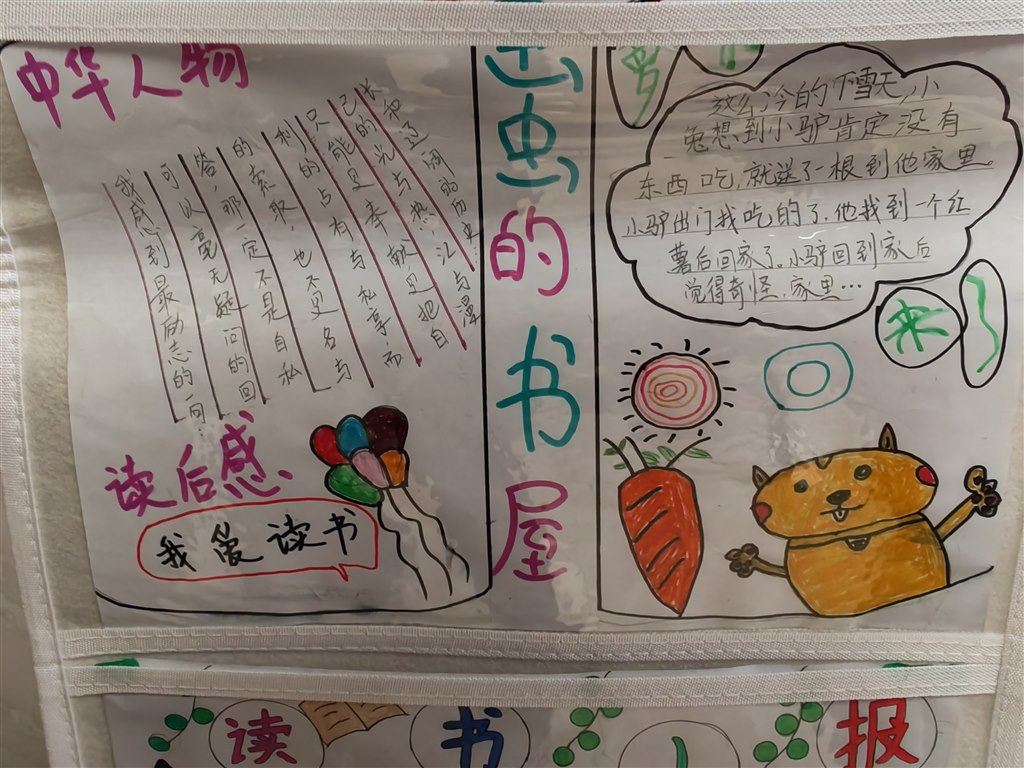 中华人物
我感到最励志的一问
可以毫无疑问的回
答,那一定不是自私
的索取,也不更名与
利的占有与私享,而
只能更奉献更把自
己的光与热汇与漫
长和辽阔的历史
读后感
我爱读书
虫的书屋
这么冷的下雪天,小
兔想到小驴肯定没有
东西吃,就送了一根到他家里。
小驴出门找吃的了.他找到一个红
薯后回家了。小驴回到家后
觉得奇怪,家里…
来
读书
报